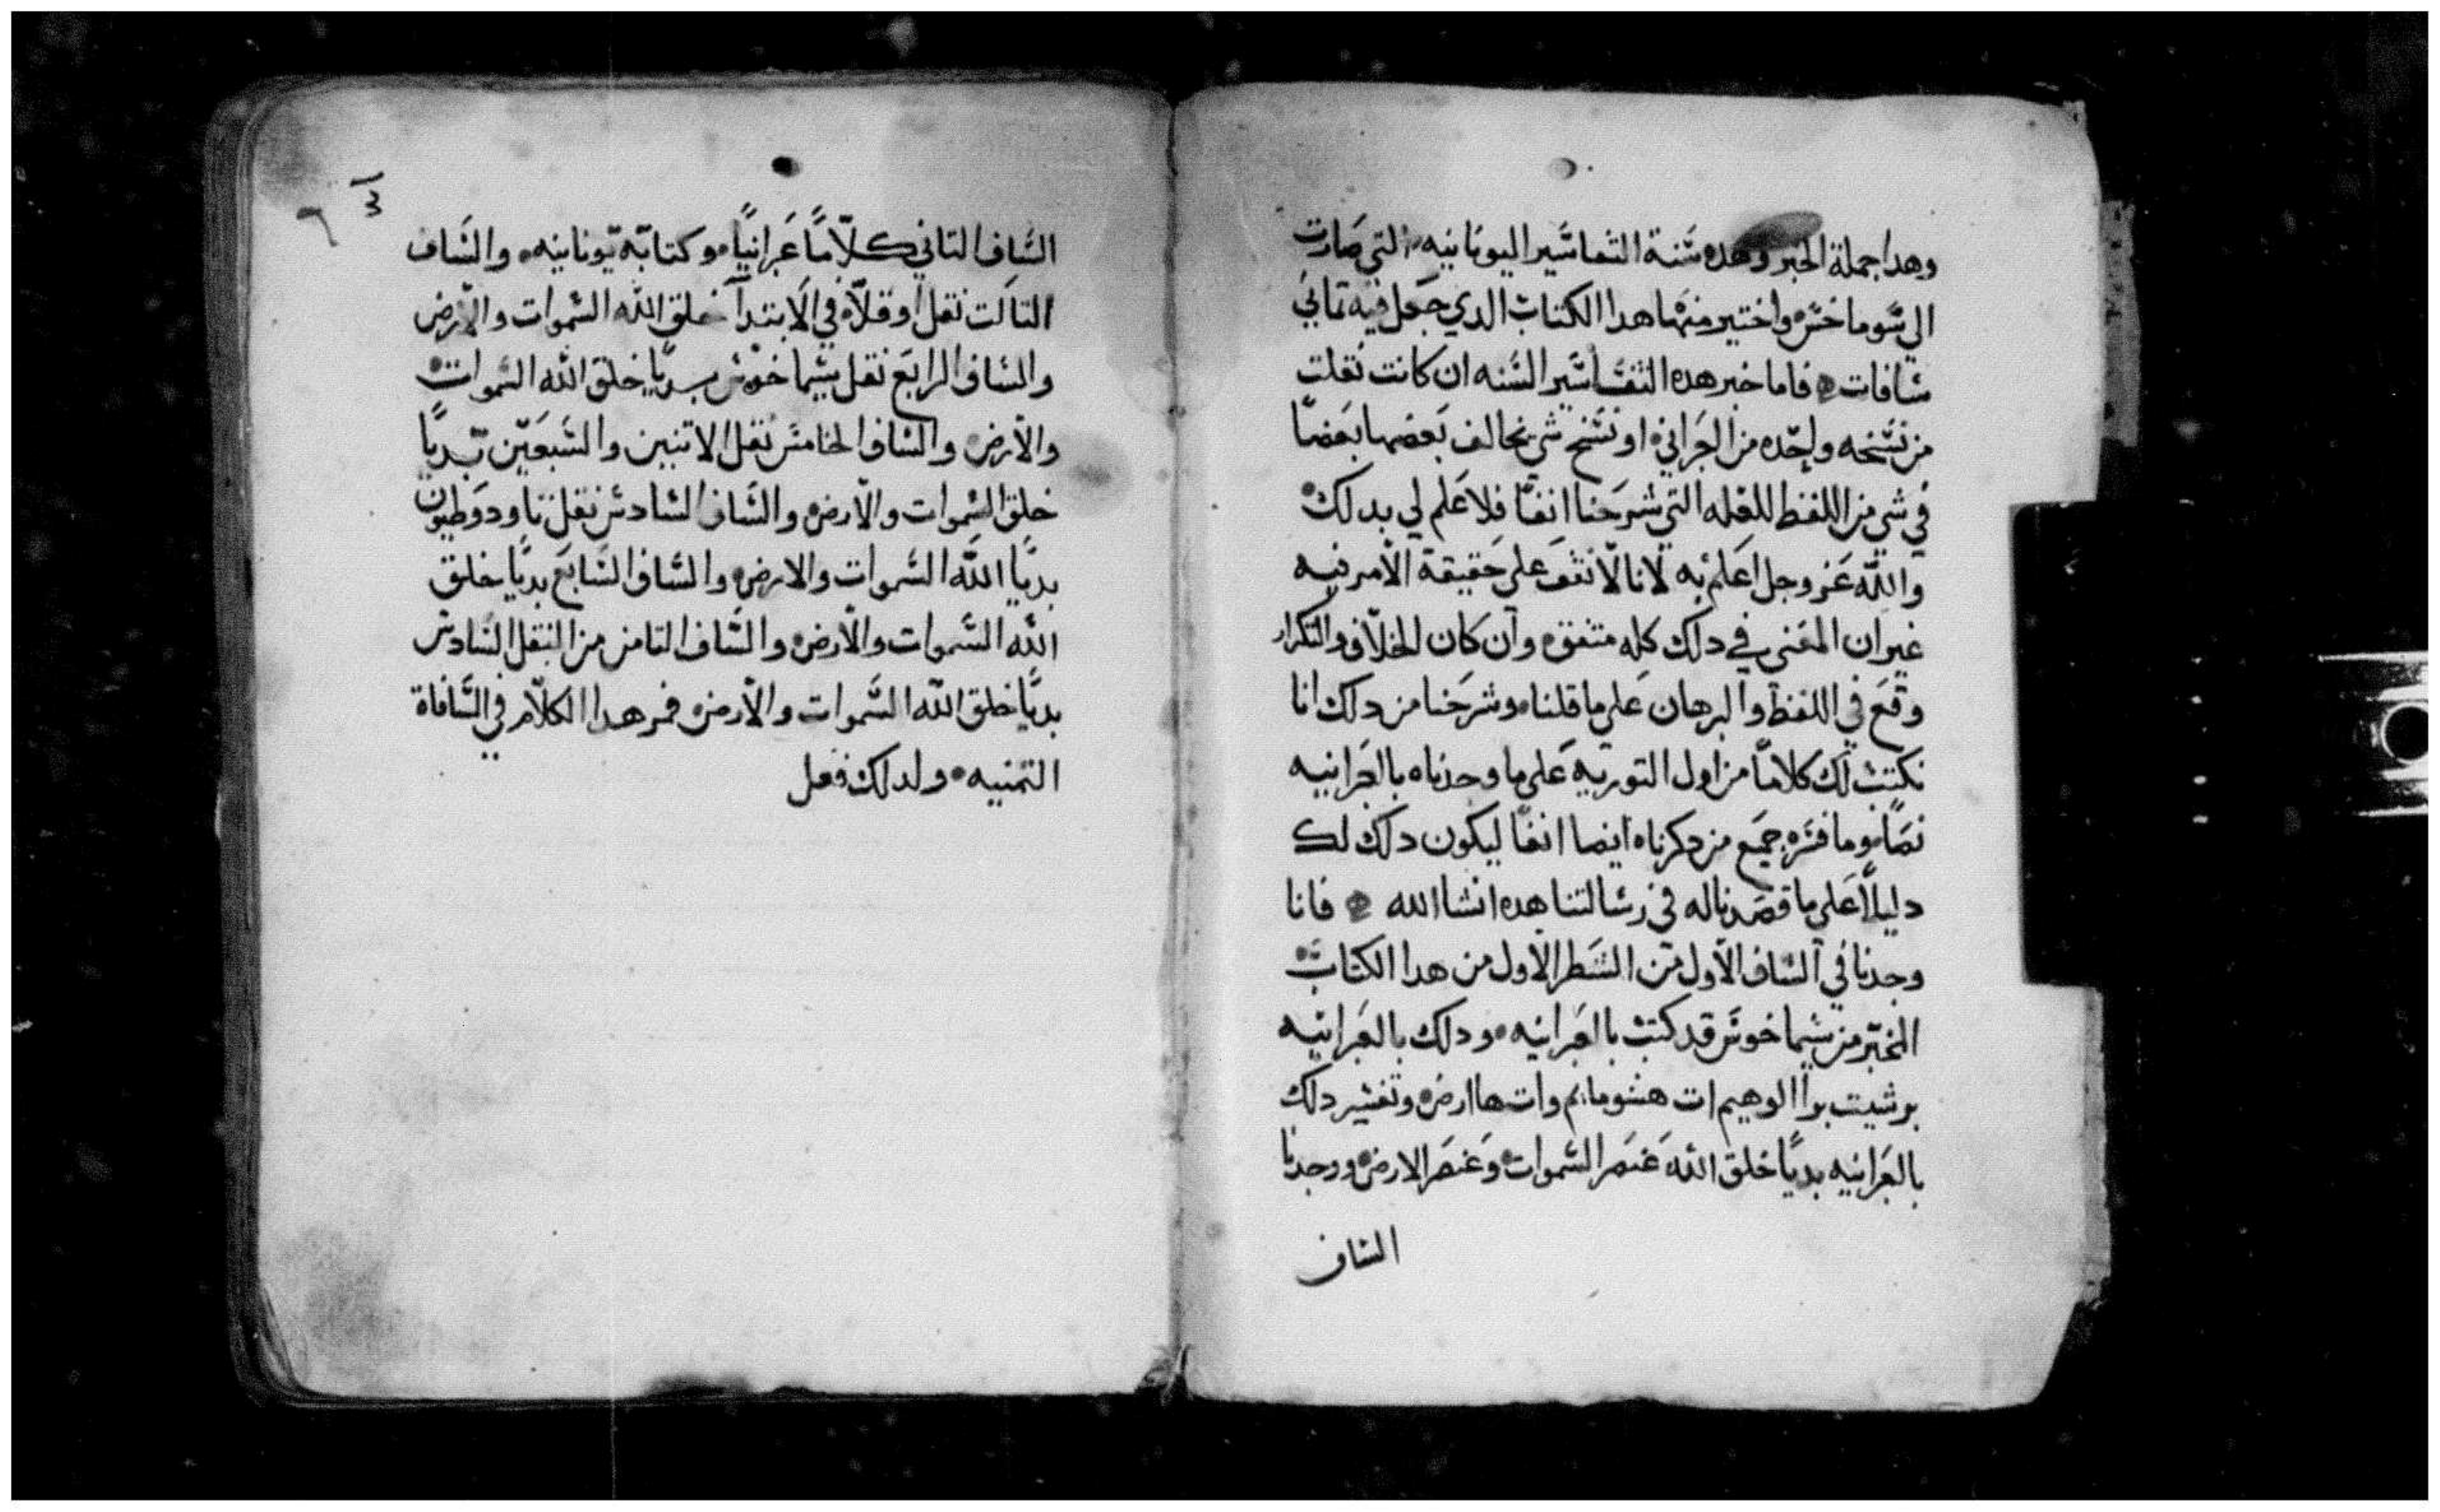 وهدا جملة الخبر وهده ستة التفاسير اليونانيه التي صارت
الي سوماخس واختير منها هدا الكتاب الدي جعل فيه تماني
سافات فاما خبر هده التفاسير السته ان كانت نقلت
من نسخه واحده من العبراني او نسخ شي يخالف بعضها بعضا
في شي من اللفظ للعله التي شرحنا انفا فلا علم لي بدلك
والله عز وجل اعلم به لانا لا نقف علي حقيقة الامر فيه
غير ان المعني في دلك كله متفق وان كان الخلاف والتكرار
وقع في اللفظ والبرهان علي ما قلنا وشرحنا من دلك انا
نكتب لك كلاما من اول التوريه علي ما وجدناه بالعبرانيه
نصا وما فسره جميع من دكرناه ايضا انفا ليكون دلك لك
دليلا علي ما قصدنا له في رسالتنا هده انشا الله فانا
وجدنا في الساف الاول من السطر الاول من هدا الكتاب
المخبر من سيماخوس قد كتب بالعبرانيه ودلك بالعبرانيه
برشيت برا الوهيم ات هشومايم وات هاارض وتفسير دلك
بالعبرانيه بديا خلق الله عنصر السموات وعنصر الارض ووجدنا
الساف
٣
٦
الساف التاني كلاما عبرانيا وكتابه يونانيه والساف
التالت نقل اوقلاه في الابتدا خلق الله السموات والارض
والساف الرابع نقل سيماخوس بديا خلق الله السموات
والارض والساف الخامس نقل الاتنين والسبعين بديا
خلق السموات والارض والساف السادس نقل تاودوطيون
بديا الله السموات والارض والساف السابع بديا خلق
الله السموات والارض والساف التامن من النقل السادس
بديا خلق الله السموات والارض فمر هدا الكلام في السافاة
التمنيه ولدلك فعل